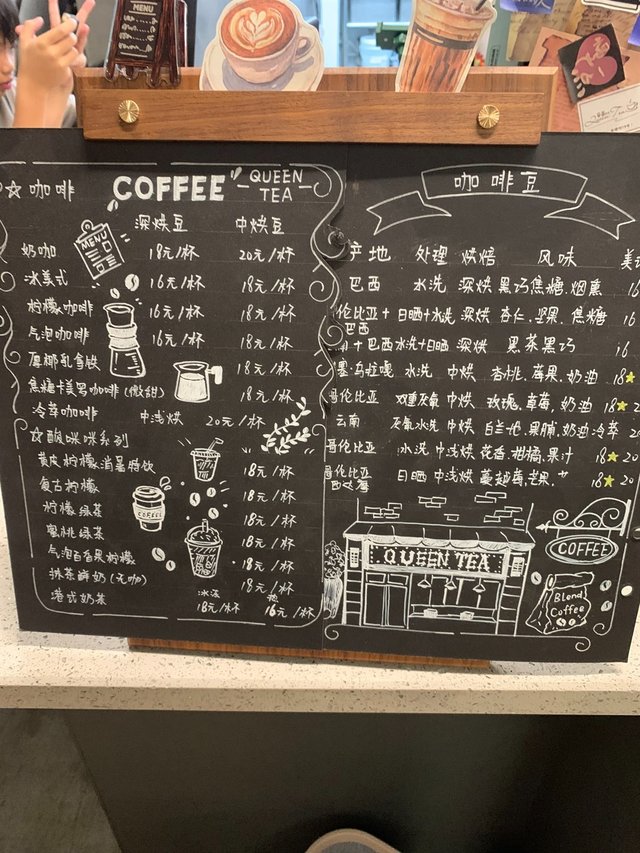 MENU
☆ 咖啡 COFFEE QUEEN TEA
深烘豆 中烘豆
MENU
奶咖 18元/杯 20元/杯
冰美式 16元/杯 18元/杯
柠檬咖啡 16元/杯 18元/杯
气泡咖啡 16元/杯 18元/杯
厚椰乳拿铁 18元/杯
焦糖卡美男咖啡(微甜) 18元/杯
冷萃咖啡 中浅烘 20元/杯
☆酸咪咪系列
黄皮柠檬消暑特饮 18元/杯
复古柠檬 18元/杯
柠檬绿茶 18元/杯
蜜桃绿茶 18元/杯
气泡百香果柠檬 18元/杯
抹茶鲜奶(无咖) 18元/杯
港式奶茶 冰冻 18元/杯 热 16元/杯
COFFEE
咖啡豆
产地 处理 烘焙 风味 美
巴西 水洗 深烘 黑巧焦糖.烟熏 16
伦比亚+巴西 日晒+水洗 深烘 杏仁.坚果.焦糖 16
+巴西 水洗+日晒 深烘 黑茶黑巧 16
水洗 中烘 杏桃.莓果.奶油 18★
哥伦比亚 双重厌氧 中烘 玫瑰.草莓.奶油 18★2
云南 厌氧水洗 中烘 白兰地.果脯.奶油 冷萃 20
哥伦比亚 水洗 中浅烘 花香.柑橘.果汁 18★20
哥伦比亚 日晒 中浅烘 蔓越莓.芒果. 18★20
QUEEN TEA
COFFEE
Blend Coffee